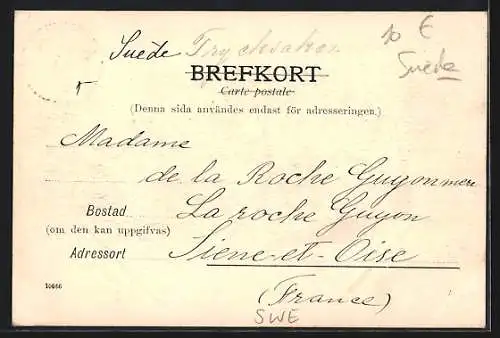 Suède Trycksaker
10 €
Suede
BREFKORT
Carte postale
(Denna sida användes endast för adresseringen.)
Madame
de la Roche Guyon mère
Bostad La roche Guyon
(om den kan uppgifvas)
Adressort Siene-et-Oise
10666
(France)
SWE